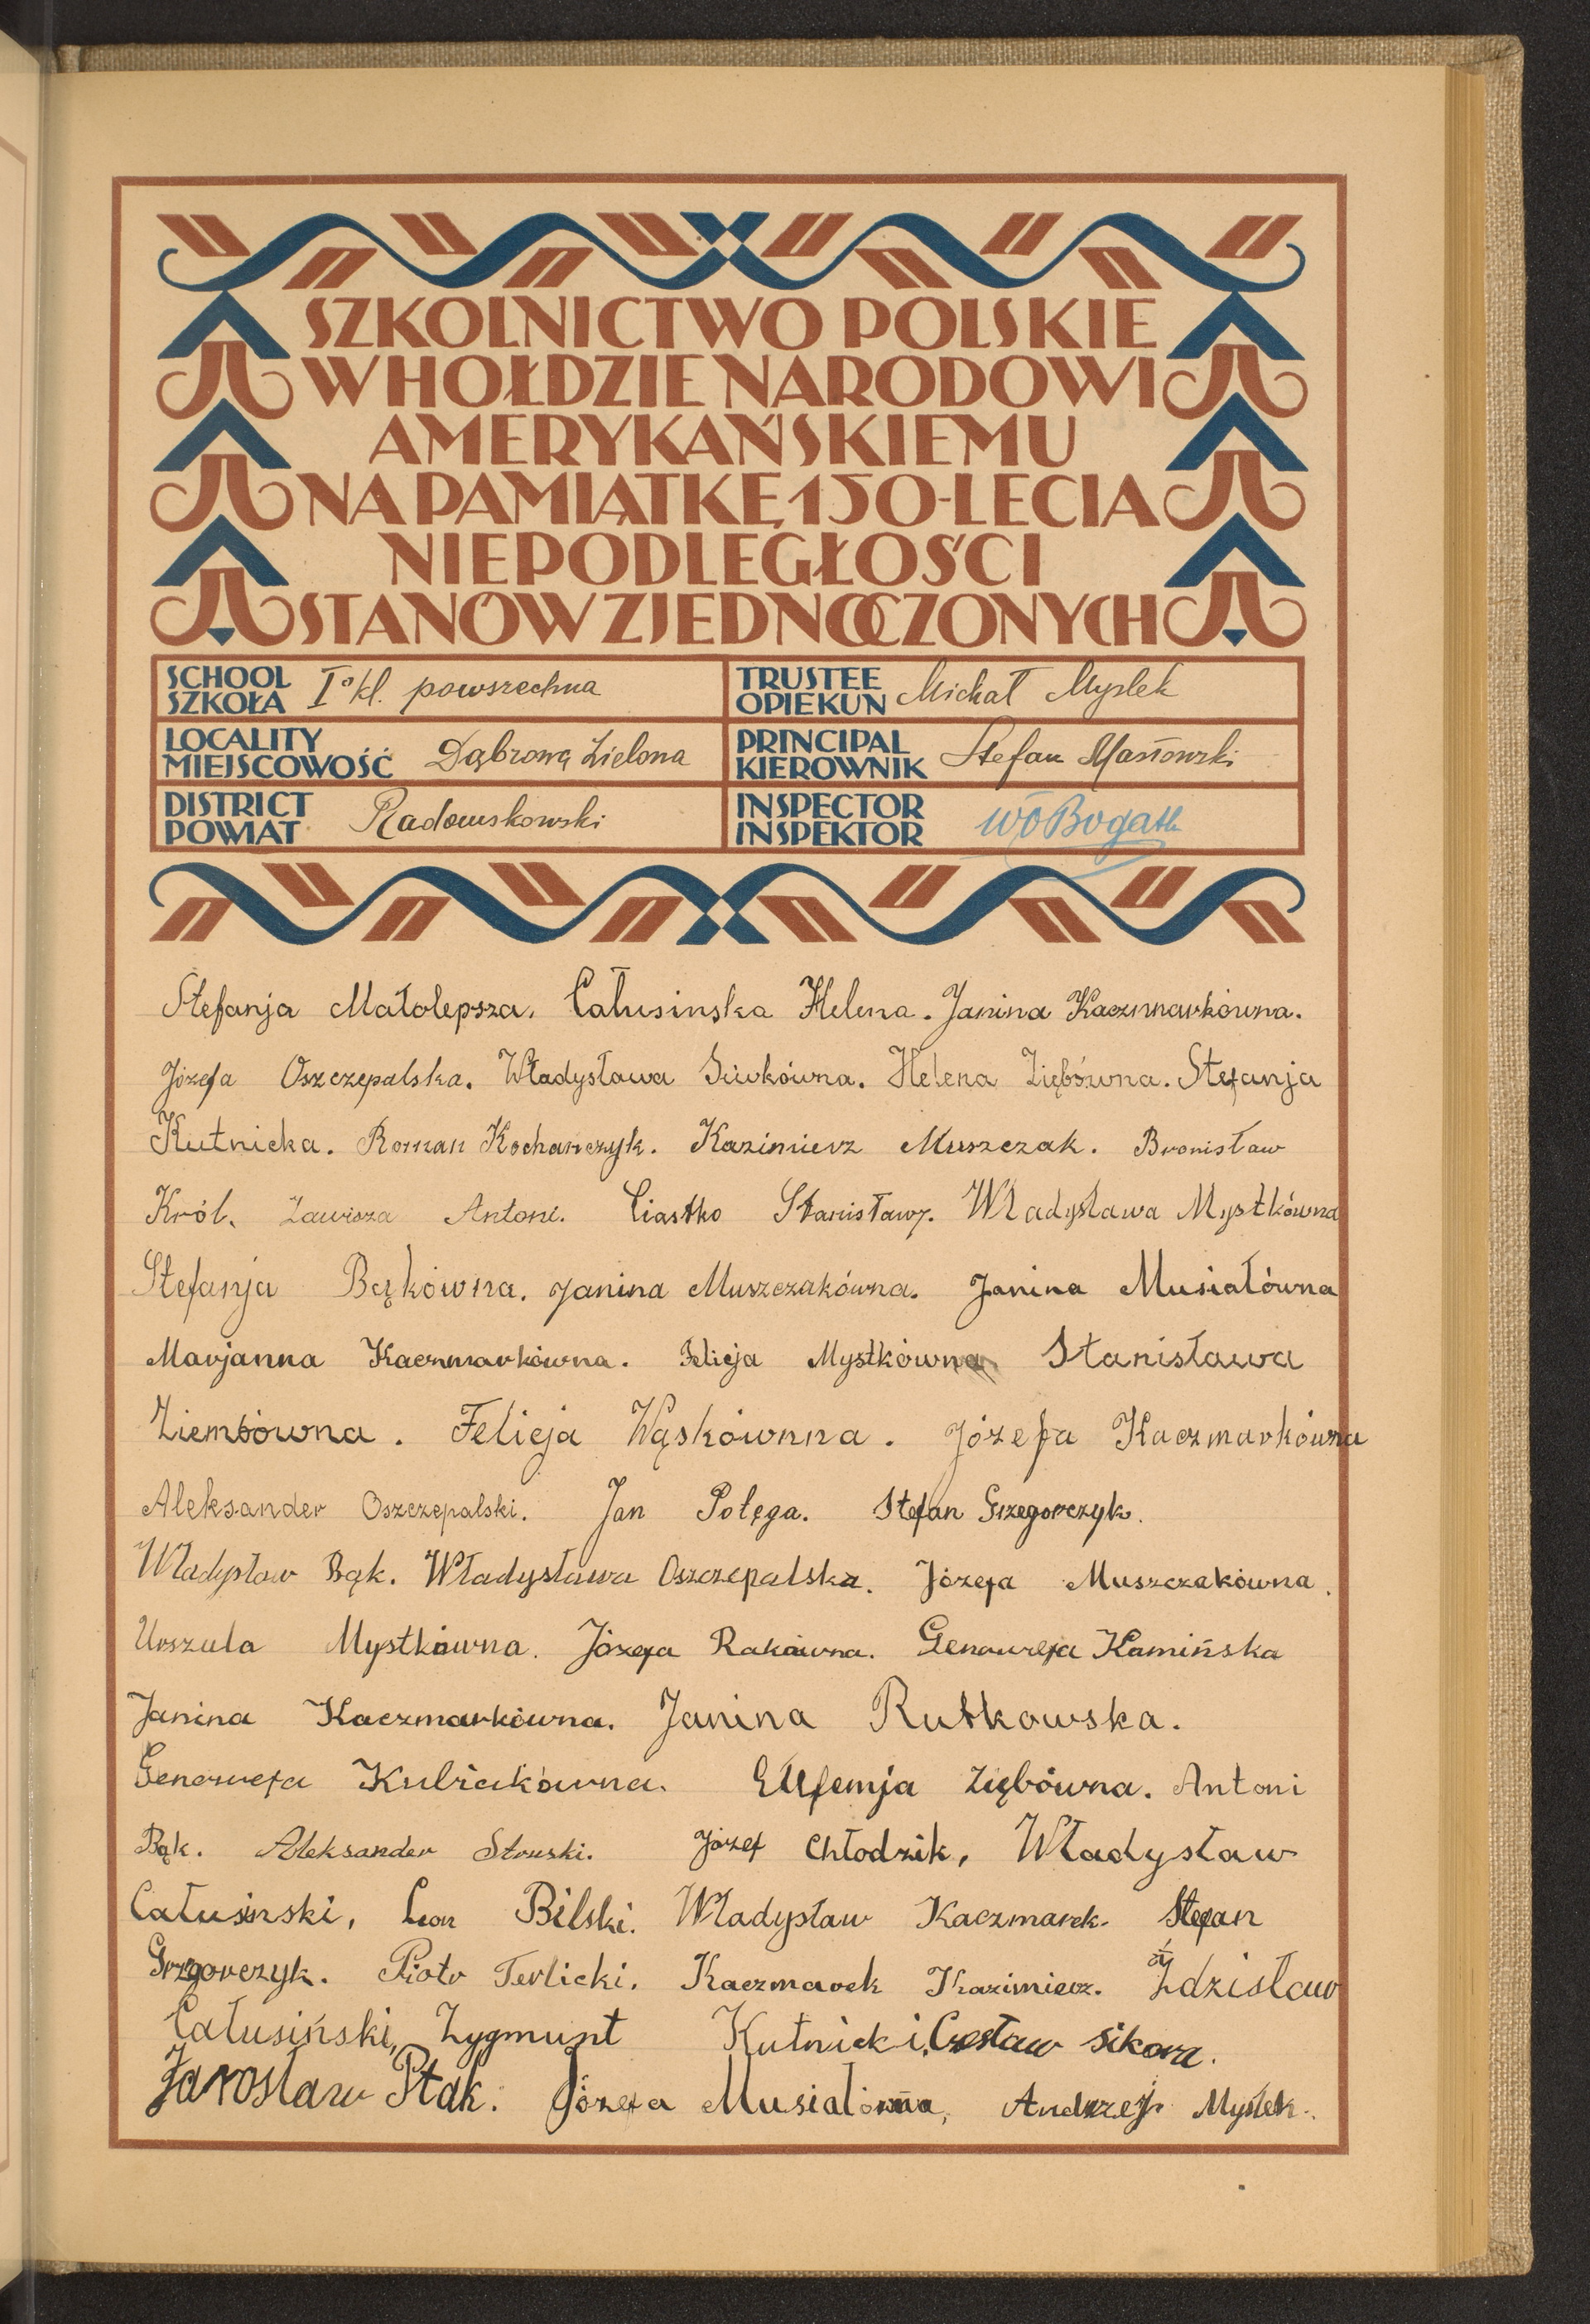 SZKOLNICTWO POLSKIE
W HOŁDZIE NARODOWI
AMERYKAŃSKIEMU
NA PAMIĄTKĘ 150-LECIA
NIEPODLEGŁOŚCI
STANÓW ZJEDNOCZONYCH
SCHOOL
SZKOŁA I° kl. powszechna
TRUSTEE
OPIEKUN Michał Myślek
LOCALITY
MIEJSCOWOŚĆ Dąbrowa Zielona
PRINCIPAL
KIEROWNIK Stefan Masłowski
DISTRICT
POWIAT Radomskowski
INSPECTOR
INSPEKTOR
Stefanja Małolepsza. Całusinska Helena. Janina Kaczmarkówna.
Józefa Oszczepalska. Władysława Helena Ziębówna. Stefanja
Kutnicka. Roman Kochanczyk. Kazimierz Muszczak. Bronisław
Król. Zawisza Antoni. Ciastko Stanisław. Władysława Mystkówna
Stefanja Bąkówna. Janina Muszczakówna. Janina Musiałówna
Marjanna Kaczmarkówna. Felicja Mystkówna Stanisława
Ziembówna. Felicja Wąskównna. Józefa Kaczmarkówna
Aleksander Oszczepalski. Jan Połęga. Stefan Grzegorczyk.
Władysław Bąk. Władysława Oszczepalska. Józefa Muszczakówna.
Urszula Mystkówna. Józefa Rakówna. Genowefa Kamińska
Janina Kaczmarkówna. Janina Rutkowska.
Genowefa Kubiakówna. Eufemja Ziębówna. Antoni
Bąk. Aleksander Struski. Józef Chłodzik, Władysław
Całusinski, Leon Bilski. Władysław Kaczmarek. Stefan
Grzgorczyk. Piotr Terlicki. Kaczmarek Kazimierz. Zdzisław
Całusiński, Zygmunt Kutnicki, Czesław Sikora.
Jarosław Ptak. Józefa Musiałówna, Andrzej Myślek.